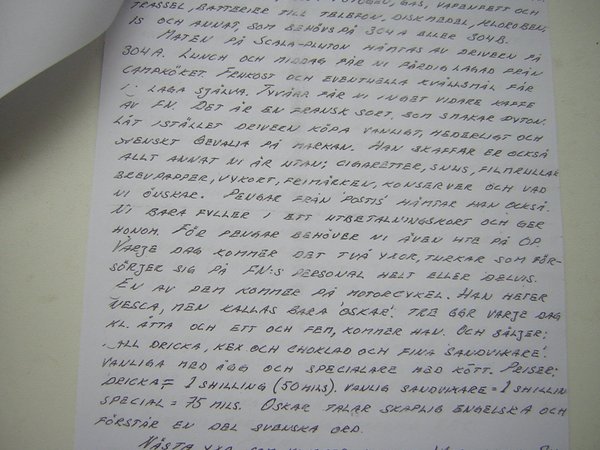 FOTOGEN, GAS, VAPENFETT OCH
TRASSEL, BATTERIER TILL TELEFON, DISKMEDEL, KLOROBEN,
IS OCH ANNAT, SOM BEHÖVS PÅ 304 A ELLER 304 B.
MATEN PÅ SCALA-PLUTON HÄMTAS AV DRIVERN PÅ
304 A. LUNCH OCH MIDDAG FÅR NI FÄRDIGLAGAD FRÅN
CAMPKÖKET. FRUKOST OCH EVENTUELLA KVÄLLSMÅL FÅR
NI LAGA SJÄLVA. TYVÄRR FÅR NI INGET VIDARE KAFFE
AV FN. DET ÄR EN FRANSK SORT, SOM SMAKAR PYTON.
LÅT ISTÄLLET DRIVERN KÖPA VANLIGT, HEDERLIGT OCH
SVENSKT GEVALIA PÅ MARKAN. HAN SKAFFAR ER OCKSÅ
ALLT ANNAT NI ÄR UTAN; CIGARETTER, SNUS, FILMRULLAR
BREVPAPPER, VYKORT, FRIMÄRKEN, KONSERVER OCH VAD
NI ÖNSKAR. PENGAR FRÅN 'POSTIS' HÄMTAR HAN OCKSÅ.
NI BARA FYLLER I ETT UTBETALNINGSKORT OCH GER
HONOM. FÖR PENGAR BEHÖVER NI ÄVEN INTE PÅ OP.
VARJE DAG KOMMER DET TVÅ YXOR, TURKAR SOM FÖR-
SÖRJER SIG PÅ FN:S PERSONAL HELT ELLER DELVIS.
EN AV DEM KOMMER PÅ MOTORCYKEL. HAN HETER
VESCA, MEN KALLAS BARA 'OSKAR'. TRE GGR VARJE DAG
KL. ÅTTA OCH ETT OCH FEM, KOMMER HAN. OCH SÄLJER;
ALL DRICKA, KEX OCH CHOKLAD OCH FINA 'SANDVIKARE'.
VANLIGA MED ÄGG OCH SPECIALARE MED KÖTT. PRISER;
DRICKA = 1 SHILLING (50 MILS). VANLIG SANDVIKARE = 1 SHILLIN
SPECIAL = 75 MILS. OSKAR TALAR SKAPLIG ENGELSKA OCH
FÖRSTÅR EN DEL SVENSKA ORD.
NÄSTA YXA